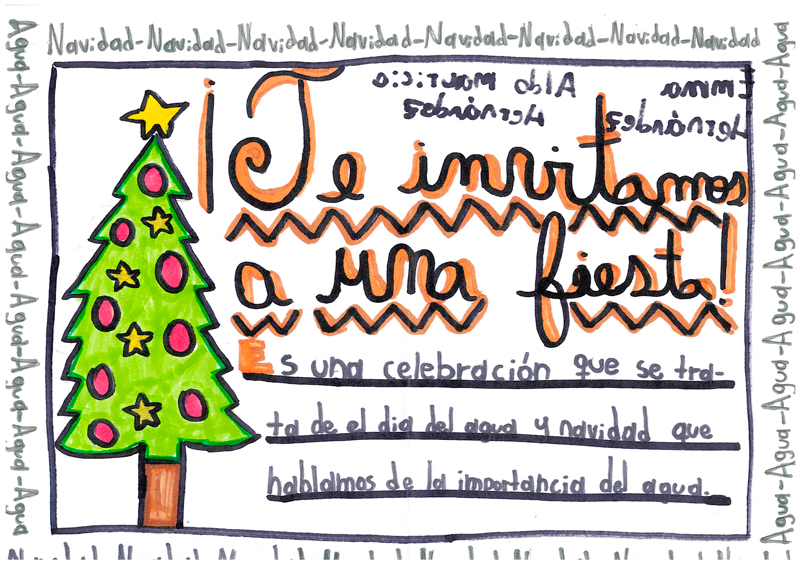 Navidad-Navidad-Navidad-Navidad-Navidad-Navidad-Navidad-Navidad
Agua-Agua-Agua-Agua-Agua-Agua-Agua-Agua
Mauricio
Hernández
Emma
Hernández
¡Te invitamos
a una fiesta!
Es una celebración que se tra-
ta de el dia del agua y navidad que
hablamos de la importancia del agua.
Agua-Agua-Agua-Agua-Agua-Agua-Agua-Agua